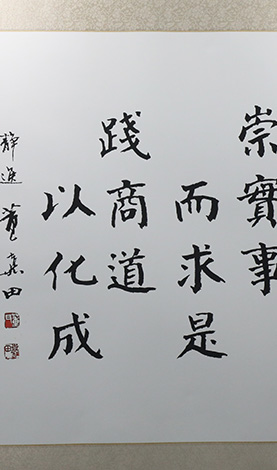 崇實事
而求是
踐商道
以化成
靜遠 董義田